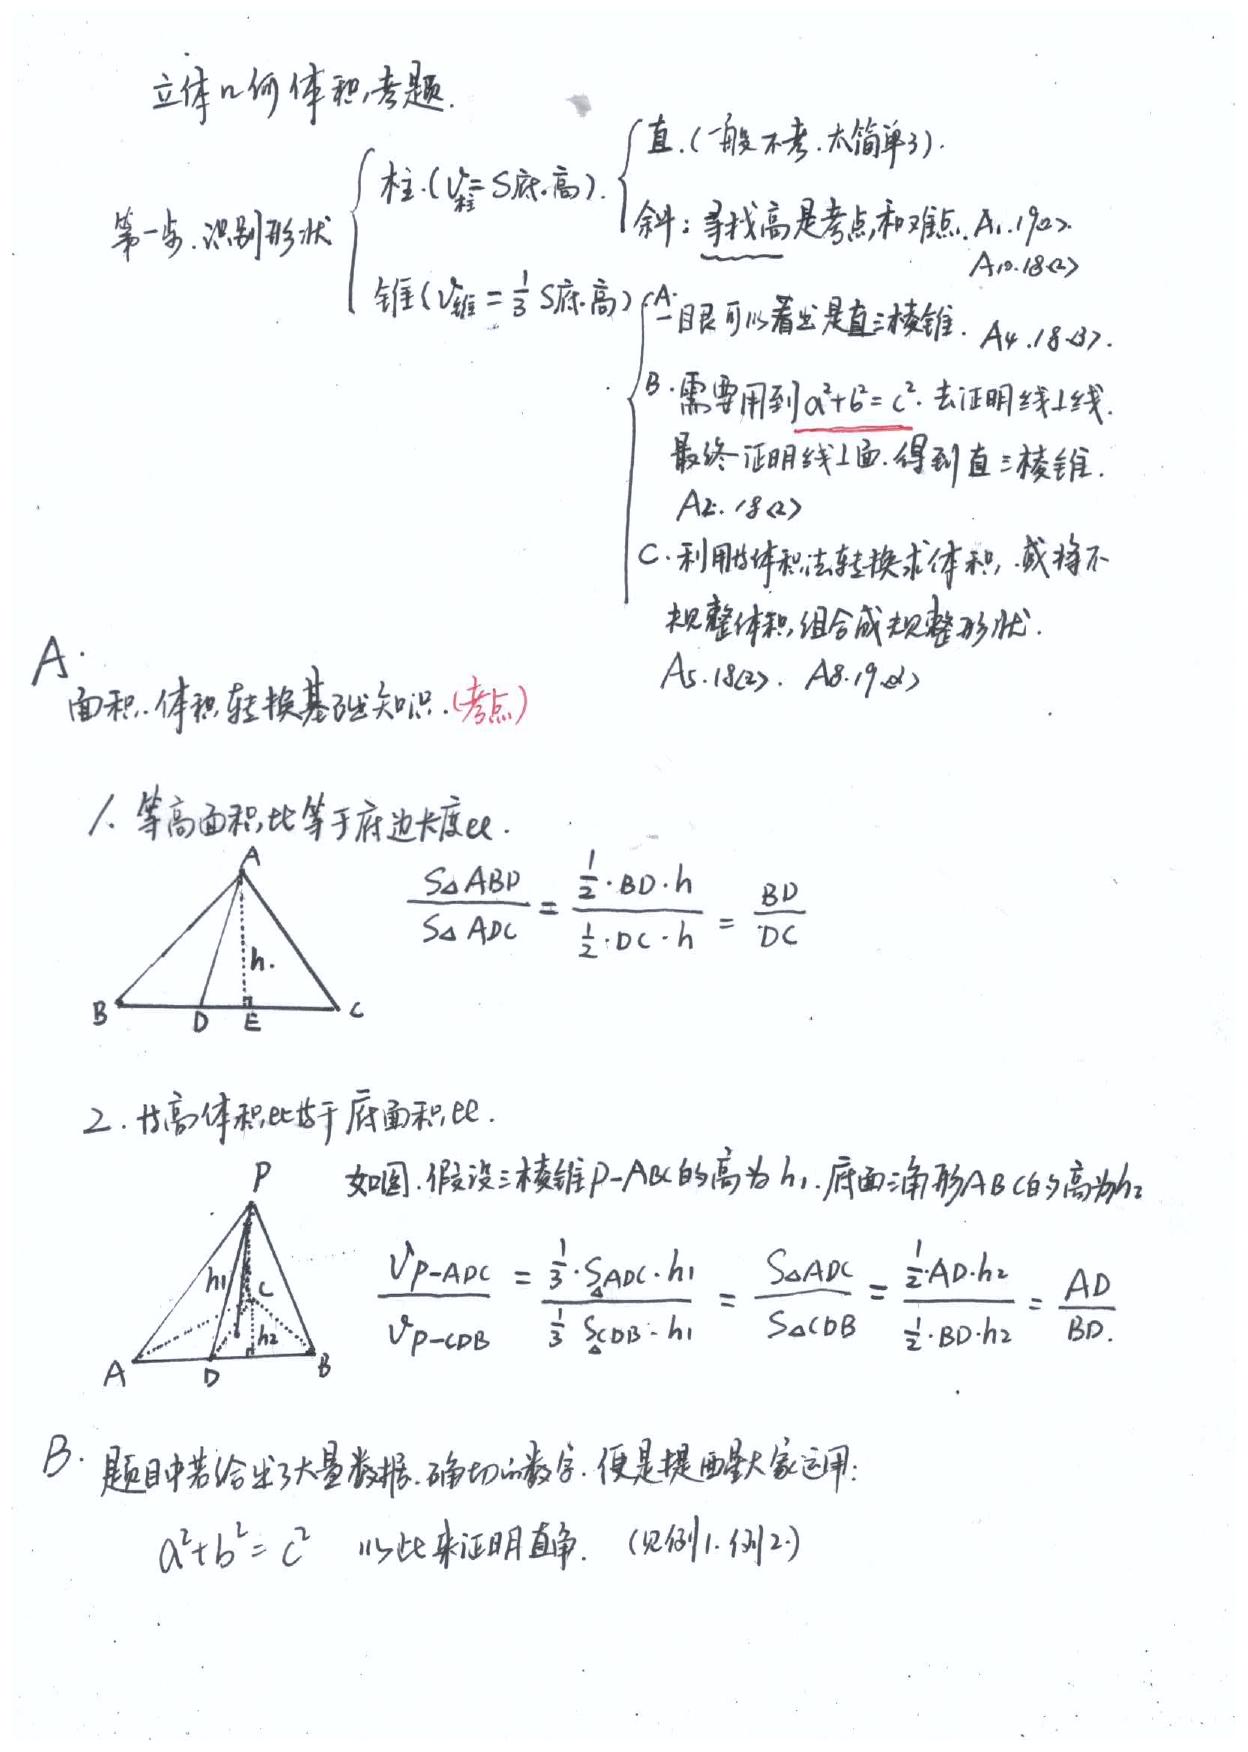 立体几何体积考题.
第一步.识别形状
柱.(V柱=S底·高).
直.(一般不考.太简单了).
斜:寻找高是考点和难点. A1.19(2).
A10.18(2)
锥(V锥=1/3 S底·高)
A.一眼可以看出是直三棱锥. A4.18(3).
B.需要用到a²+b²=c².去证明线⊥线.
最终证明线⊥面.得到直三棱锥.
A2.18(2)
C.利用等体积法转换求体积,或将不
规整体积,组合成规整形状.
A5.18(2). A8.19(2)
A.
面积.体积转换基础知识.(考点)
1.等高面积比等于底边长度比.
S△ABD/S△ADC = (1/2·BD·h)/(1/2·DC·h) = BD/DC
A
h.
B D E C
2.等高体积比等于底面积比.
如图.假设三棱锥P-ABC的高为h1.底面三角形ABC的高为h2
VP-ADC/VP-CDB = (1/3·S△ADC·h1)/(1/3 S△CDB·h1) = S△ADC/S△CDB = (1/2·AD·h2)/(1/2·BD·h2) = AD/BD.
P
h1 C
h2
A D B
B.题目中若给出了大量数据.确切的数字.便是提醒大家运用:
a²+b²=c² 以此来证明直角. (见例1.例2.)